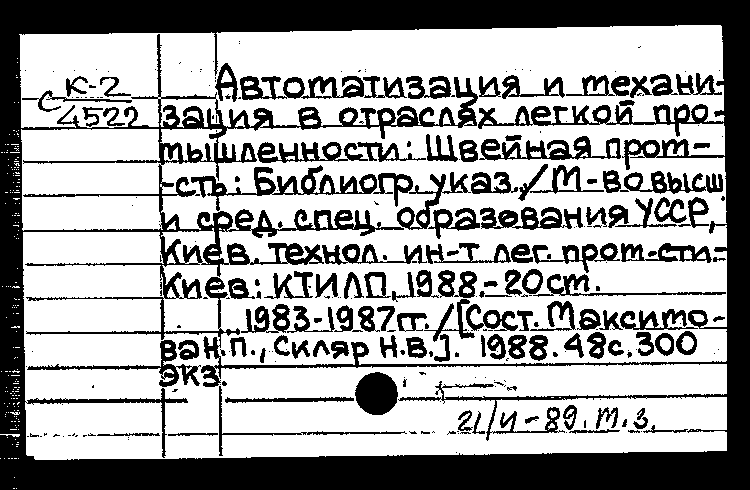 К-2
С 4522
Автоматизация и механи-
зация в отраслях легкой про-
мышленности: Швейная пром-
-сть: Библиогр. указ./М-во высш
и сред. спец. образования УССР,
Киев. технол. ин-т лег. пром-сти.-
Киев: КТИЛП, 1988.-20 см.
...1983-1987 гг./[Сост. Максимо-
ва Н.П., Скляр Н.В.]. 1988. 48с. 300
экз.
21/и-89. т.з.